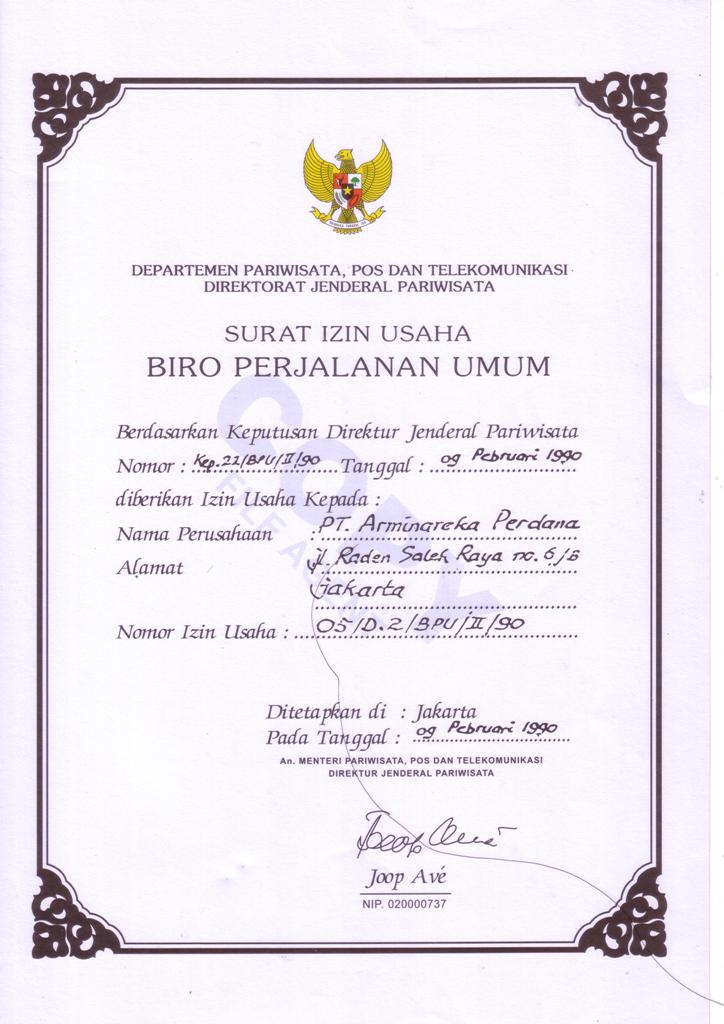 DEPARTEMEN PARIWISATA, POS DAN TELEKOMUNIKASI
DIREKTORAT JENDERAL PARIWISATA
SURAT IZIN USAHA
BIRO PERJALANAN UMUM
Berdasarkan Keputusan Direktur Jenderal Pariwisata
Nomor : Kep.22/BPU/II/90 Tanggal : 09 Pebruari 1990
diberikan Izin Usaha Kepada :
Nama Perusahaan : PT. Arminareka Perdana
Alamat Jl. Raden Saleh Raya no. 6/B
Jakarta
Nomor Izin Usaha : 05/D.2/BPU/II/90
COPY
FILE
Ditetapkan di : Jakarta
Pada Tanggal : 09 Pebruari 1990
An. MENTERI PARIWISATA, POS DAN TELEKOMUNIKASI
DIREKTUR JENDERAL PARIWISATA
Joop Avé
Joop Avé
NIP. 020000737